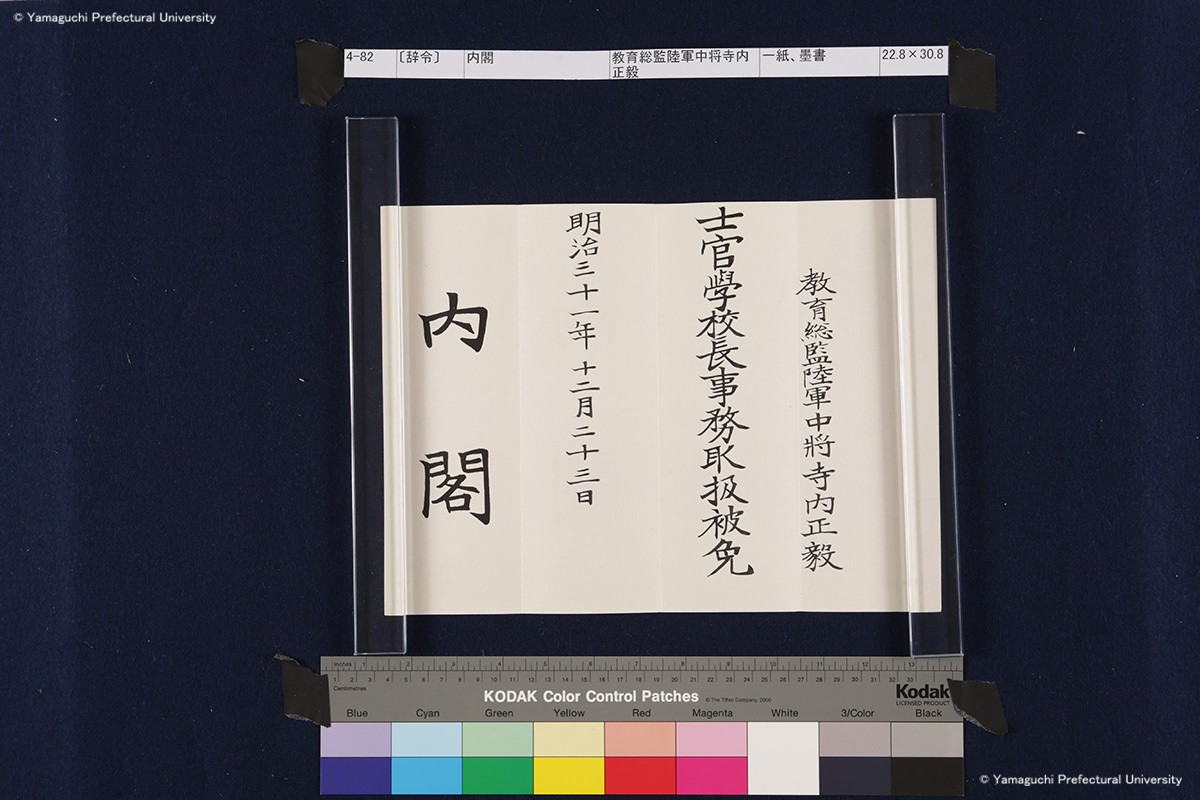 © Yamaguchi Prefectural University
4-82 〔辞令〕 内閣 教育総監陸軍中将寺内正毅 一紙、墨書 22.8×30.8
教育総監陸軍中將寺内正毅
士官學校長事務取扱被免
明治三十一年十二月二十三日
内閣
Inches 1 2 3 4 5 6 7 8 9 10 11 12 13
Centimetres 1 2 3 4 5 6 7 8 9 10 11 12 13 14 15 16 17 18 19 20 21 22 23 24 25 26 27 28 29 30 31 32 33
KODAK Color Control Patches © The Tiffen Company, 2008 Kodak
LICENSED PRODUCT
Blue Cyan Green Yellow Red Magenta White 3/Color Black
© Yamaguchi Prefectural University